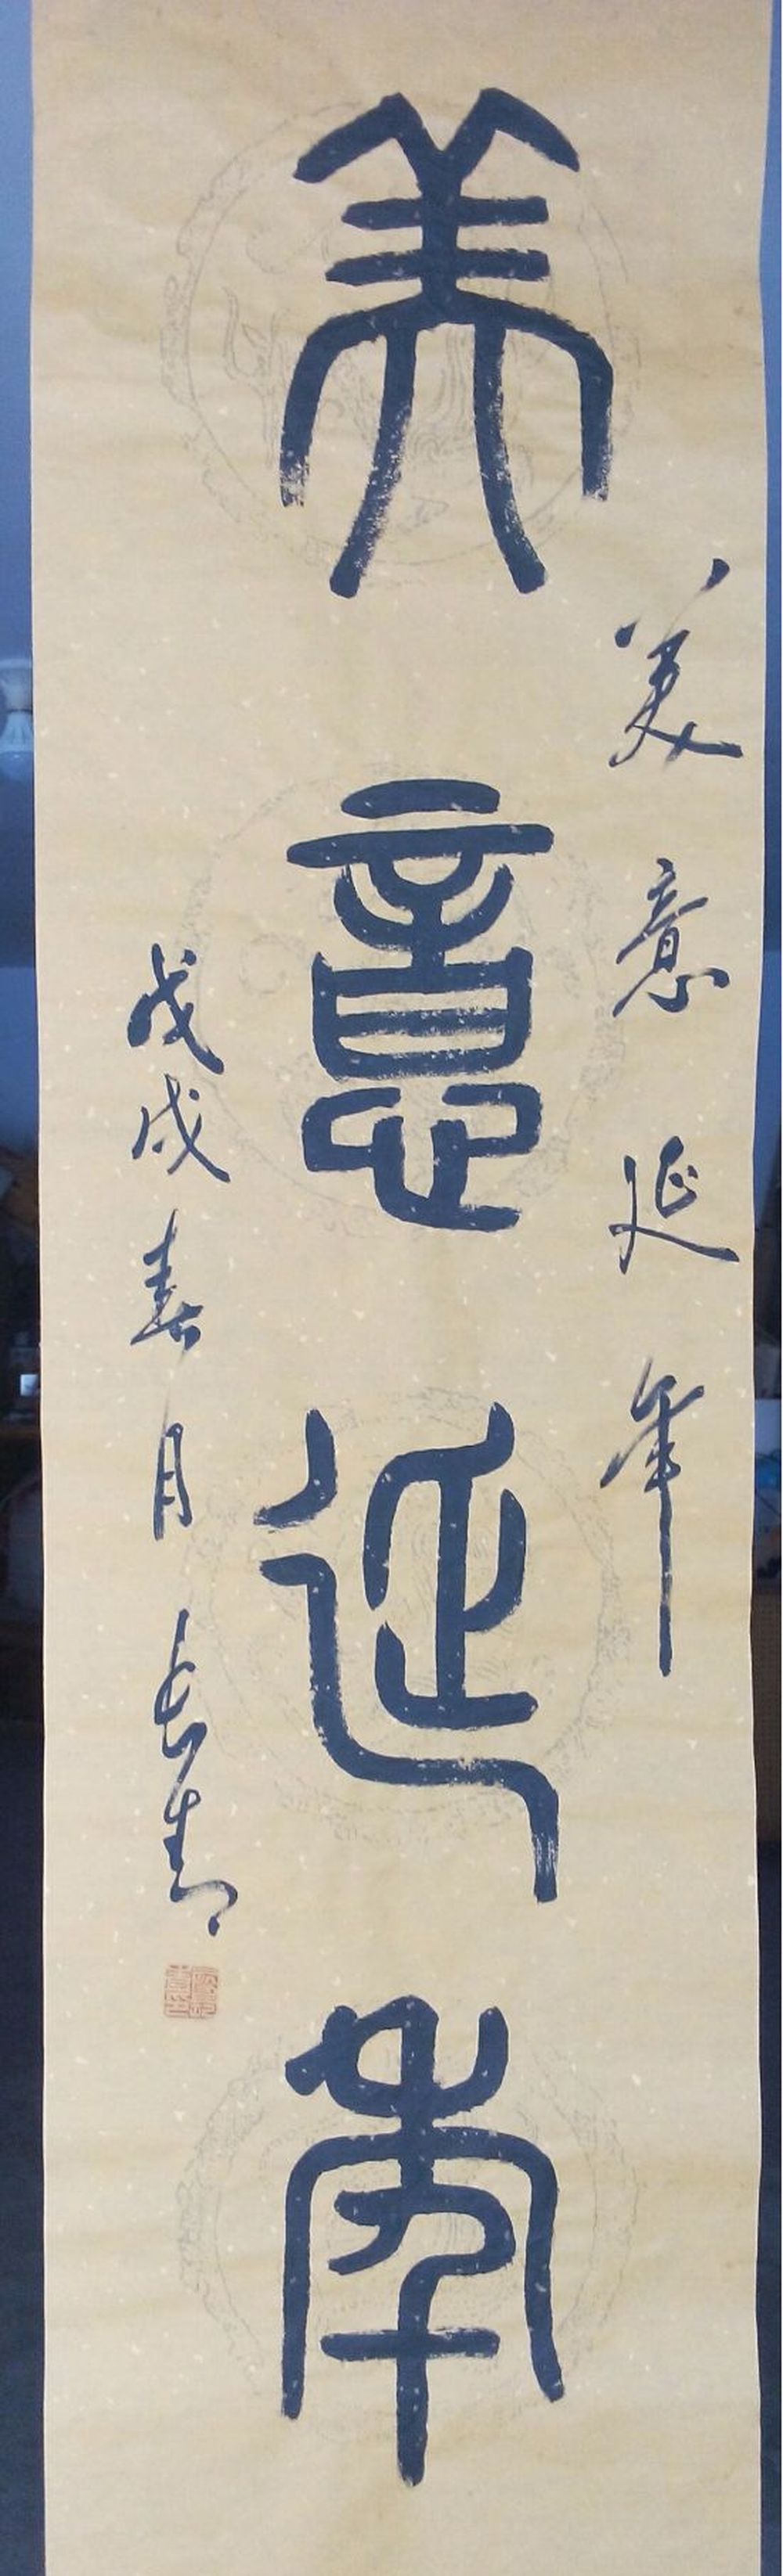 美意延年
美意延年
戊戌春月长青